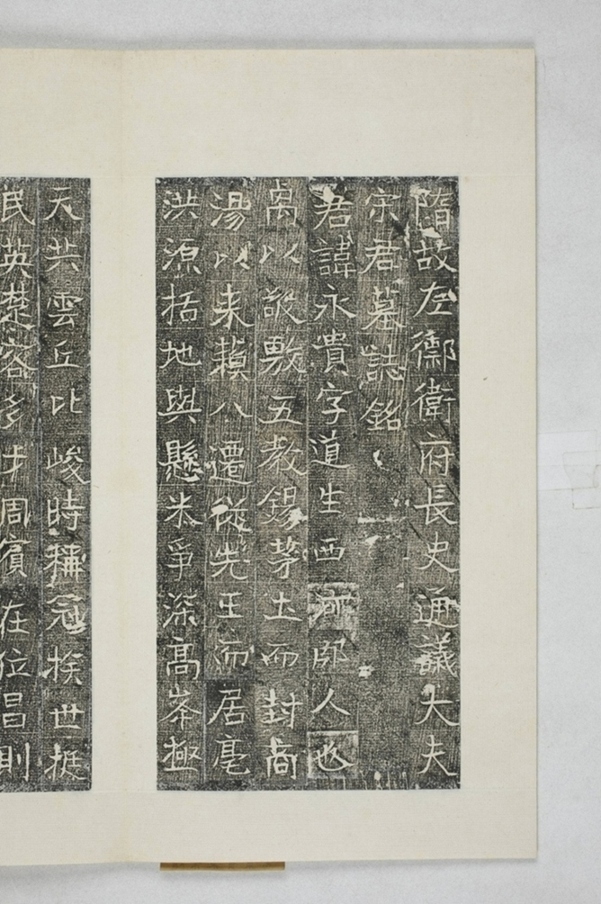 隋故左禦衛府長史通議大夫
宋君墓誌銘
君諱永貴字道生西河郡人也
卨以敬敷五教錫茅土而封商
湯以来頻八遷從先王而居亳
洪源括地與懸米爭深高峯極
天共雲丘比峻時稱冠族世挺
民英楚容多士周賓在位昌則